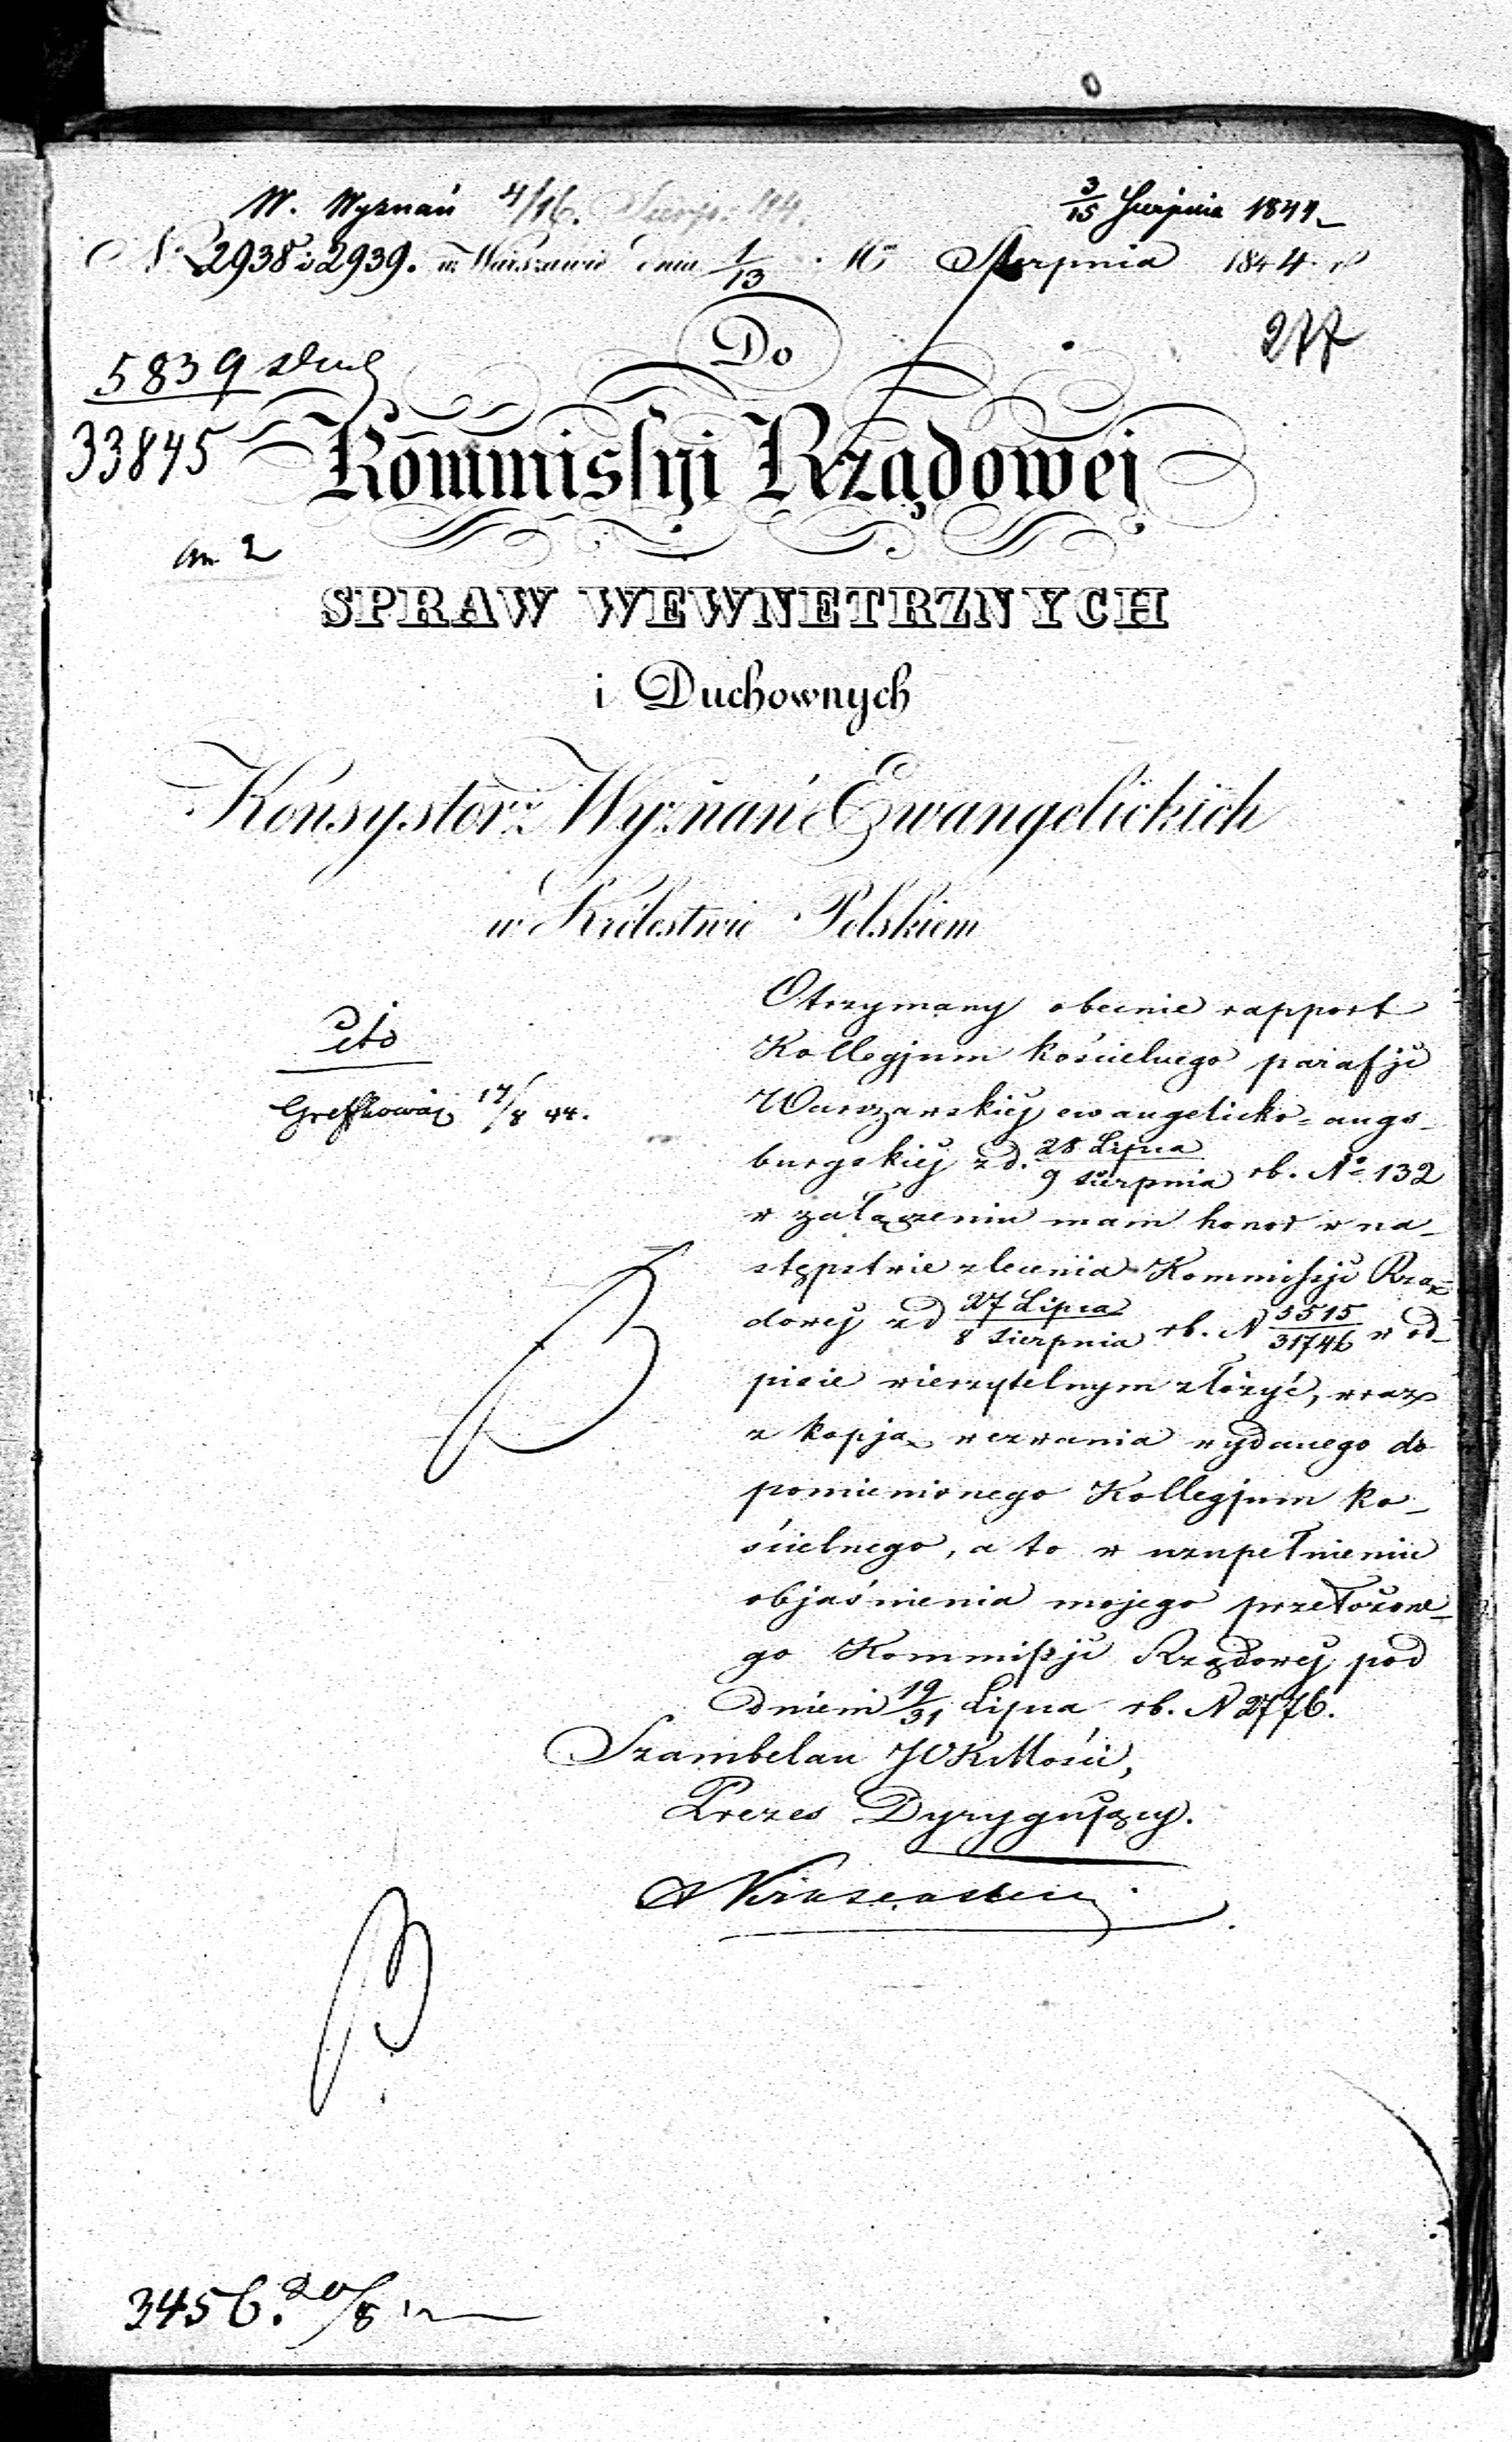 W. Wyznań 4/16. Sierp. 184
3/15 Sierpnia 1844
N. 2938 i 2939. w Warszawie dnia 1/13 Sierpnia 1844 r
277
Do
5839
33845
Kommissyi Rządowej
an 2
SPRAW WEWNETRZNYCH
i Duchownych
Konsystorz Wyznań Ewangelickich
w Królestwie Polskiem
Cito
17/8 44.
Otrzymany obecnie rapport
Kollegjum kościelnego parafji
Warszawskiej ewangelicko=augs-
burgskiej z d. 28 Lipca / 9 sierpnia rb. No 132
w załączeniu mam honor w na-
stępstwie zlecenia Kommissji Rzą-
dowej z d 27 Lipca / 8 sierpnia rb. N 5515/31746 w od-
pisie wierzytelnym złożyć, wraz
z kopją wezwania wydanego do
pomienionego Kollegjum ko-
ścielnego, a to w uzupełnieniu
objaśnienia mojego przełożone-
go Kommissji Rządowej pod
dniem 19/31 Lipca rb. N 2776.
Szambelan JCKMości,
Prezes Dyrygujący.
3456. 20/8